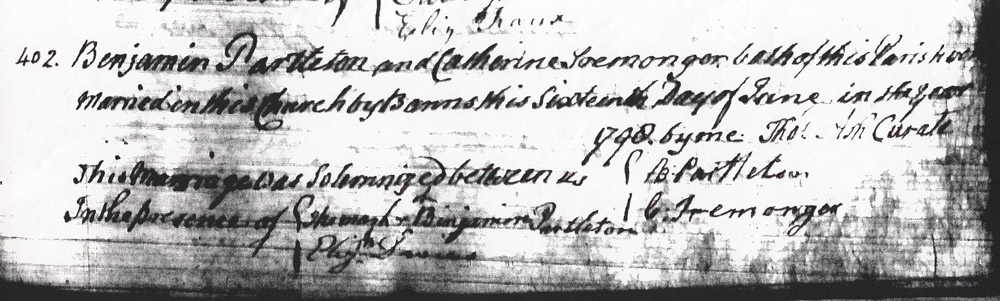 Eliz
402. Benjamin Partleton and Catherine Iremonger both of this Parish were
Married in this Church by Banns this Sixteenth Day of June in the year
1798. by me Thos. Ash Curate
This Marriage was Solemnized between us { B. Partleton
C. Iremonger
In the Presence of { Benjamin Partleton
Eliz